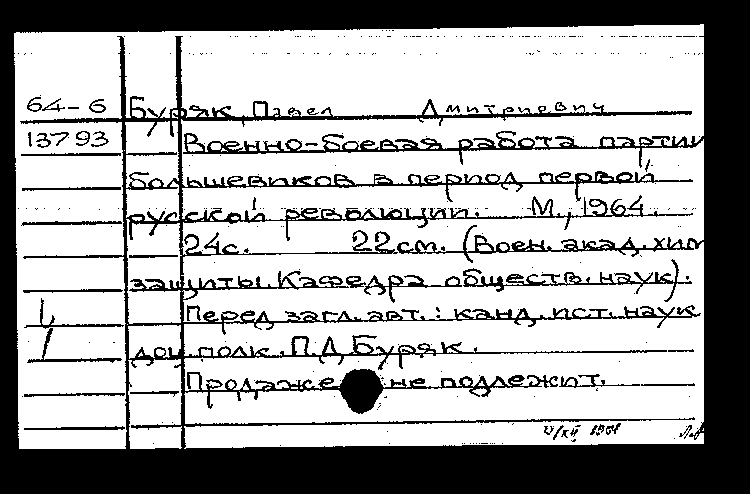 64-6 Буряк, Павел Дмитриевич
13793 Военно-боевая работа партии
большевиков в период первой
русской революции. М., 1964.
24с. 22см. (Воен. акад. хим
защиты. Кафедра обществ. наук).
Перед загл. авт.: канд. ист. наук
доц. полк. П.Д. Буряк.
Продаже не подлежит.